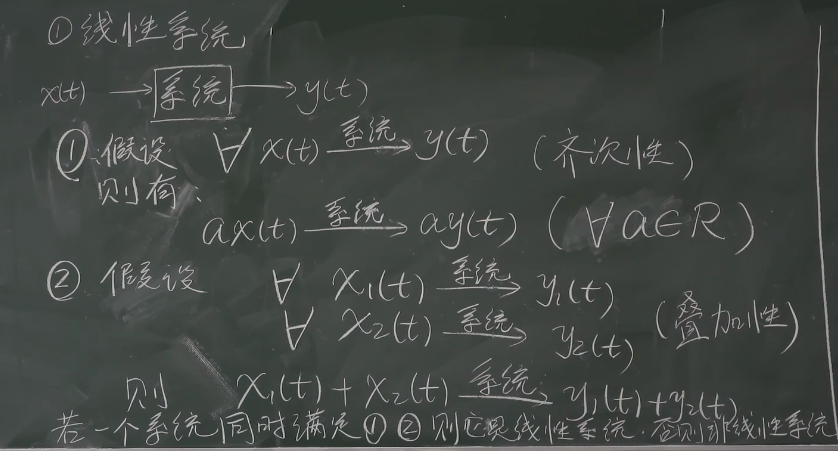 ① 线性系统
x(t) → 系统 → y(t)
① 假设 ∀ x(t) 系统→ y(t) (齐次性)
则有:
ax(t) 系统→ ay(t) (∀a∈R)
② 假设 ∀ x₁(t) 系统→ y₁(t)
∀ x₂(t) 系统→ y₂(t) (叠加性)
则 x₁(t)+x₂(t) 系统→ y₁(t)+y₂(t)
若一个系统同时满足①②则它是线性系统.否则非线性系统